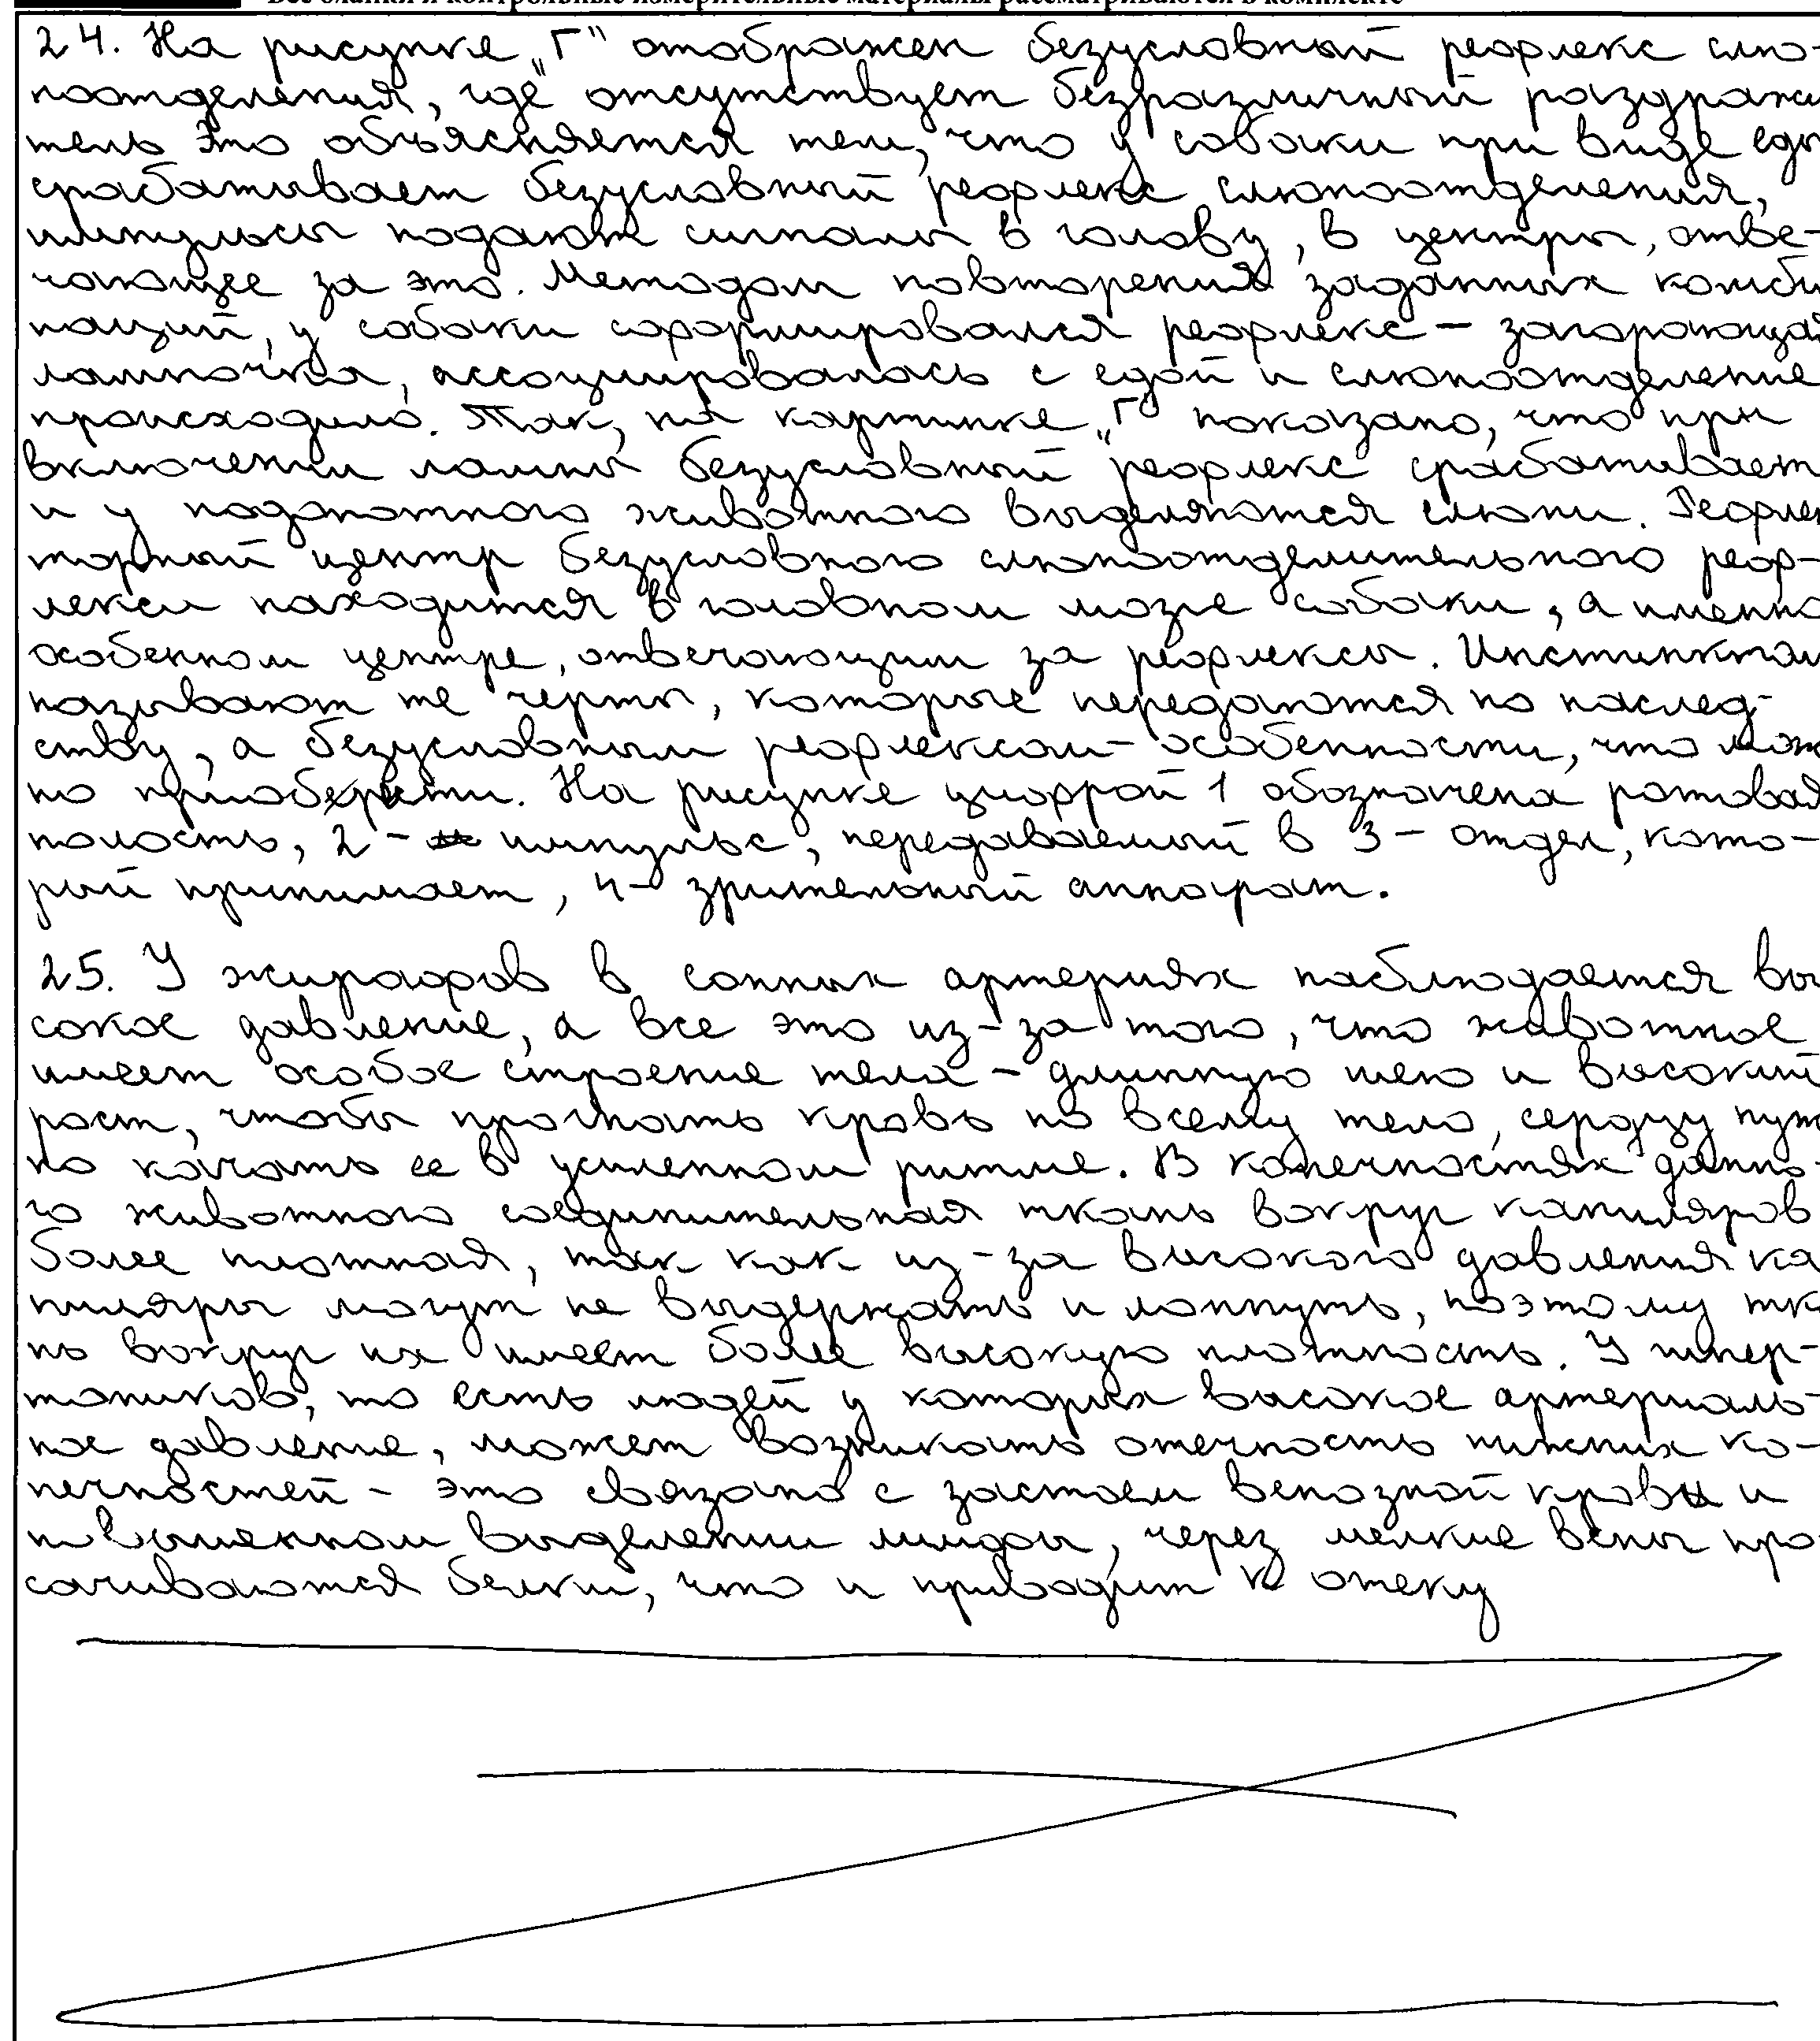 Все бланки и контрольные измерительные материалы рассматриваются в комплекте
24. На рисунке „Г" отображен безусловный рефлекс слю-
ноотделения, где отсутствует безразличный раздражи
тель Это объясняется тем, что у собаки при виде еды
срабатывает безусловный рефлекс слюноотделения,
импульсы подают сигналы в голову, в центры, отве-
чающее за это. Методом повторения заданных комби
наций, у собаки сформировался рефлекс – загорающая
лампочка, ассоциировалась с едой и слюноотделение
происходило. Так, на картинке „Г" показано, что при
включении лампы безусловный рефлекс срабатывает
и у подопотного животного выделяются слюни. Рефлек
торный центр безусловного слюноотделительного реф-
лекса находится в головном мозге собаки, а именно
особенном центре, отвечающим за рефлексы. Инстинктом
называют те черты, которые передаются по наслед-
ству, а безусловным рефлексом – особенности, что мож
но приобрети. На рисунке цифрой 1 обозначена ротовая
полость, 2 – импульс, передаваемый в 3 – отдел, кото-
рый принимает, 4 – зрительный аппарат.
25. У жирафов в сонных артериях наблюдается вы
сокое давление, а все это из-за того, что животное
имеет особое строение тела – длинную шею и высокий
рост, чтобы прогнать кровь по всему тело, сердцу нуж
но качать ее в усиленном ритме. В конечностях данно-
го животного соединительная ткань вокруг капиляров
более плотная, так как из-за высокого давления ка
пиляры могут не выдержать и лопнуть, поэтому тка
нь вокруг их имеет более высокую плотность. У гипер-
тоников, то есть людей у которых высокое артериаль-
ное давление, может возникать отечность нижних ко-
нечностей – это связано с застоем венозной крови и
повышенном выделении лимфы, через мелкие вены про
сачиваются белки, что и приводит к отеку